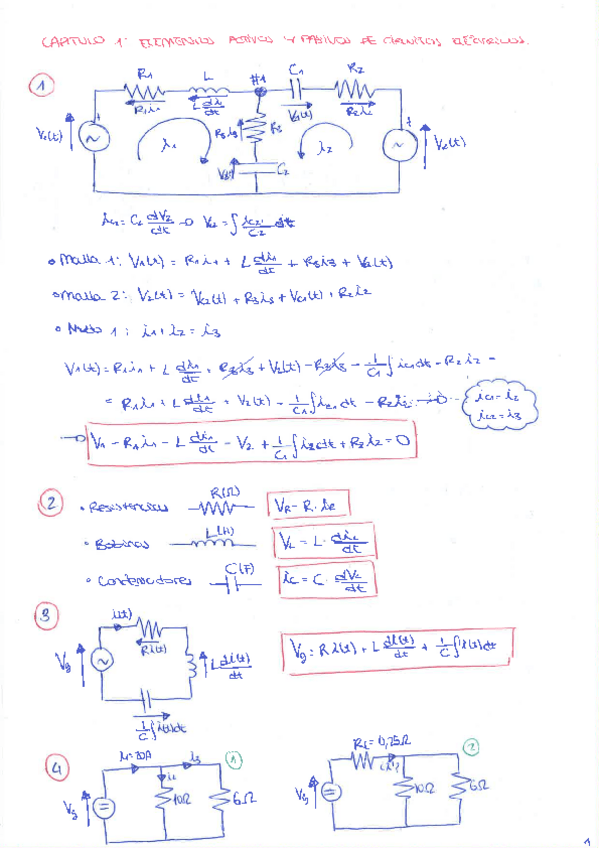 CAPITULO 1: ELEMENTOS ACTIVOS Y PASIVOS DE CIRCUITOS ELÉCTRICOS.
1
R1 L #1 C1 R2
R1i1 L di1/dt V1(t) R2i2
V1(t) i1 R3i3 R3 i2 V2(t)
C2
ic2 = C2 dV2/dt → V2 = ∫ ic2/C2 dt
• Malla 1: V1(t) = R1i1 + L di1/dt + R3i3 + V2(t)
• Malla 2: V2(t) = V2(t) + R3i3 + Vc1(t) + R2i2
• Nudo 1: i1+i2 = i3
V1(t) = R1i1 + L di1/dt + R3i3 + V2(t) - R3i3 - 1/C1 ∫ ic1dt - R2i2 =
= R1i1 + L di1/dt + V2(t) - 1/C1 ∫ ic1 dt - R2i2 →
ic1 = i2
ic2 = i3
→ V1 - R1i1 - L di1/dt - V2 + 1/C1 ∫ i2dt + R2i2 = 0
2
• Resistencias R(Ω) VR = R · iR
• Bobinas L(H) VL = L · diL/dt
• Condensadores C(F) ic = C · dVc/dt
3
i(t)
Vg Ri(t) L di(t)/dt
1/C ∫ i(t)dt
Vg = R i(t) + L di(t)/dt + 1/C ∫ i(t)dt
4
i1=20A i3 1
i2
Vg 10Ω 6Ω
RL = 0,25Ω 2
Vg 10Ω 6Ω
1